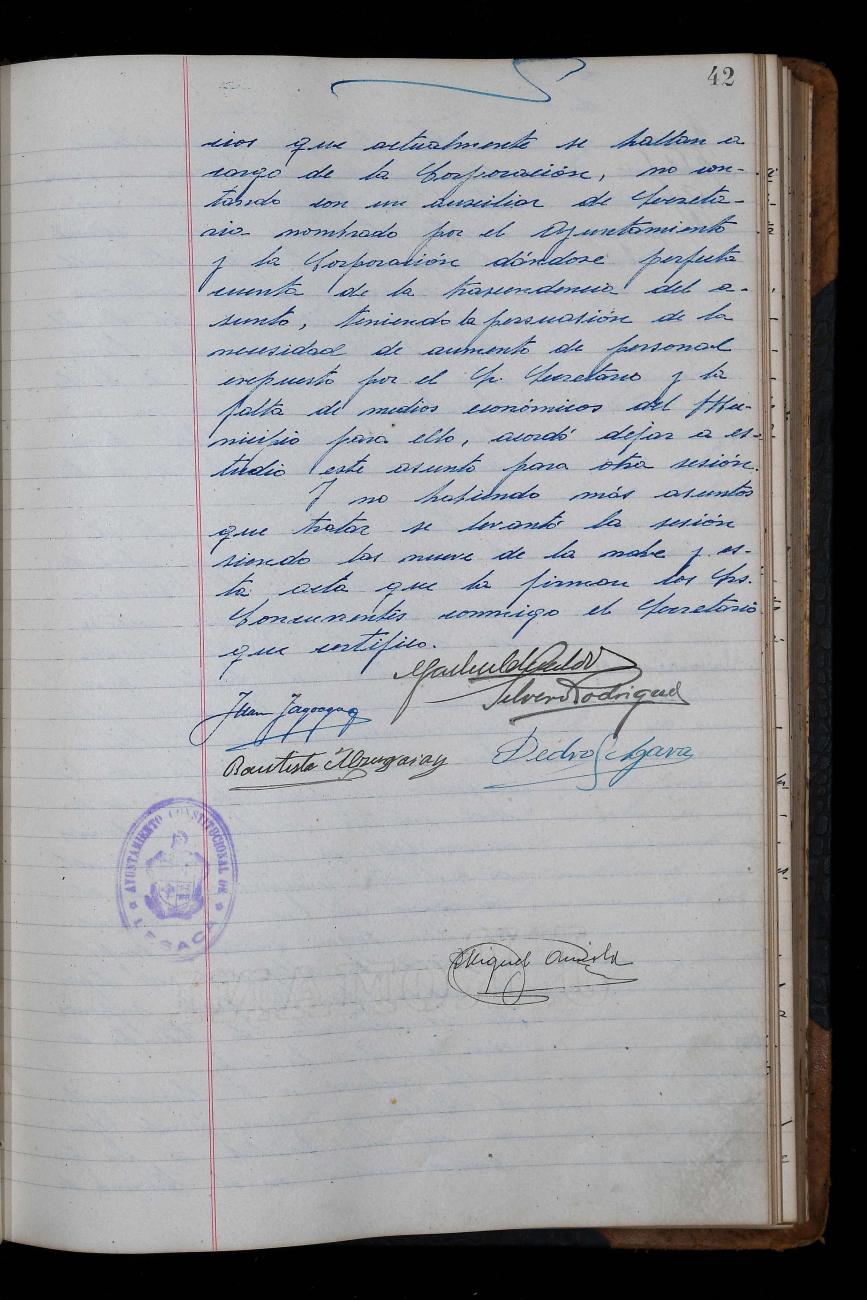 42
cios que actualmente se hallan a
cargo de la Corporación, no con-
tando con un auxiliar de Secreta-
ria nombrado por el Ayuntamiento
y la Corporación dándose perfecta
cuenta de la trascendencia del a-
sunto, teniendo la persuasión de la
necesidad de aumento de personal
expuesto por el Sr. Secretario y la
falta de medios económicos del Mu-
nicipio para ello, acordó dejar a es-
tudio este asunto para otra sesión.
Y no habiendo más asuntos
que tratar se levantó la sesión
siendo las nueve de la noche y es-
ta acta que la firman los Srs.
Concurrentes conmigo el Secretario
que certifico.
Silverio Rodriguez
Juan
Bautista
Pedro
AYUNTAMIENTO CONSTITUCIONAL DE
LESACA
Miguel